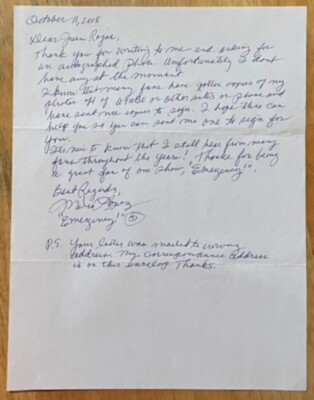 October 11, 2018
Dear Juan Rojas,
Thank you for writing to me and asking for
an autographed photo. Unfortunately I dont
have any at the moment.
I know that many fans have gotten copies of my
photos off of or other sites or phone and
have sent me copies to sign. I hope this can
help you so you can send me one to sign for
you.
Its nice to know that I still hear from many
fans throughout the year! Thanks for being
a great fan of our show, "Emergency!".
Best Regards,
"Emergency!" 51
P.S. Your letter was mailed to wrong
address. My correspondence address
is on this envelop Thanks.